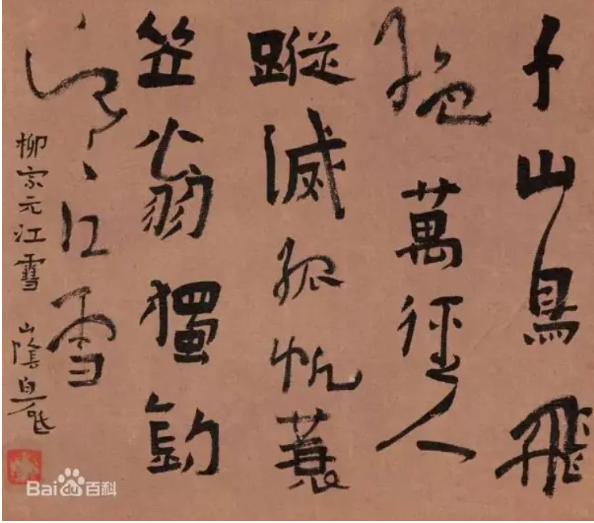 千山鳥飛
絶萬徑人
蹤滅孤帆蓑
笠翁獨釣
寒江雪
柳宗元江雪 山陰白砥
Baidu百科